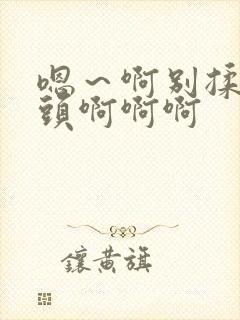 嗯～啊别揉
頭啊啊啊
鑲黄旗